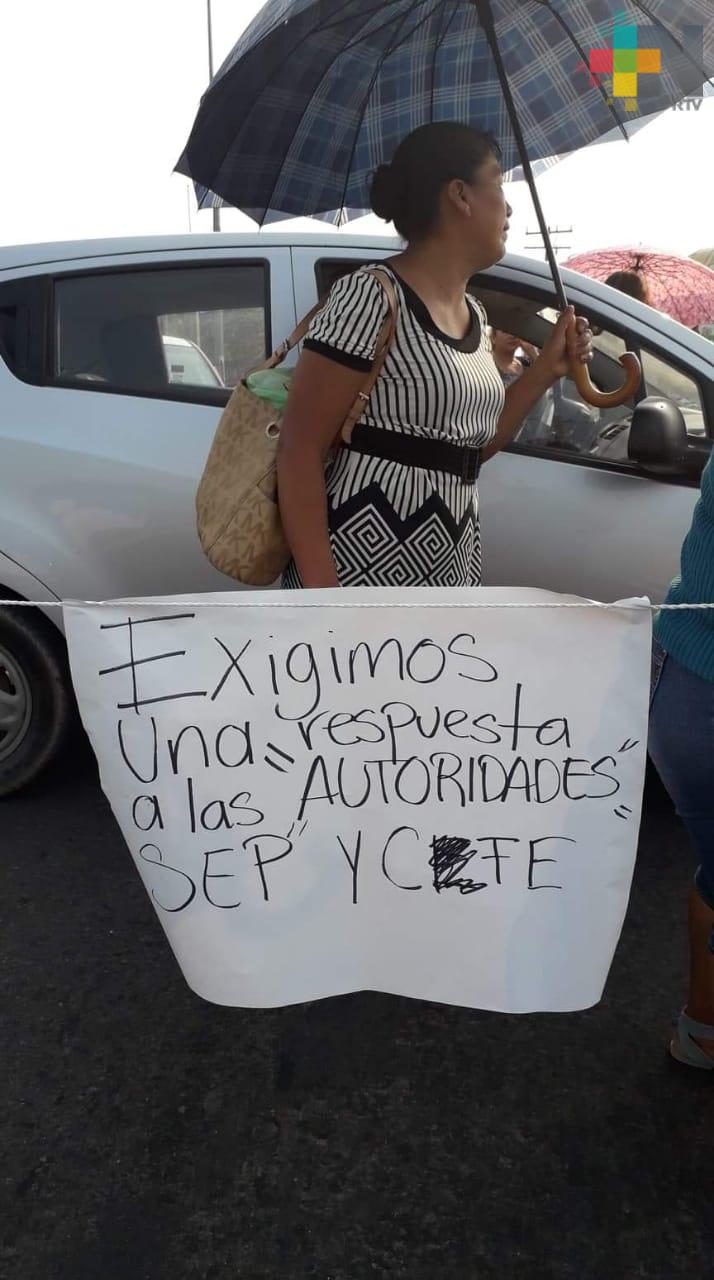 RTV
Exigimos
Una respuesta
a las "AUTORIDADES"
SEP" Y C FE